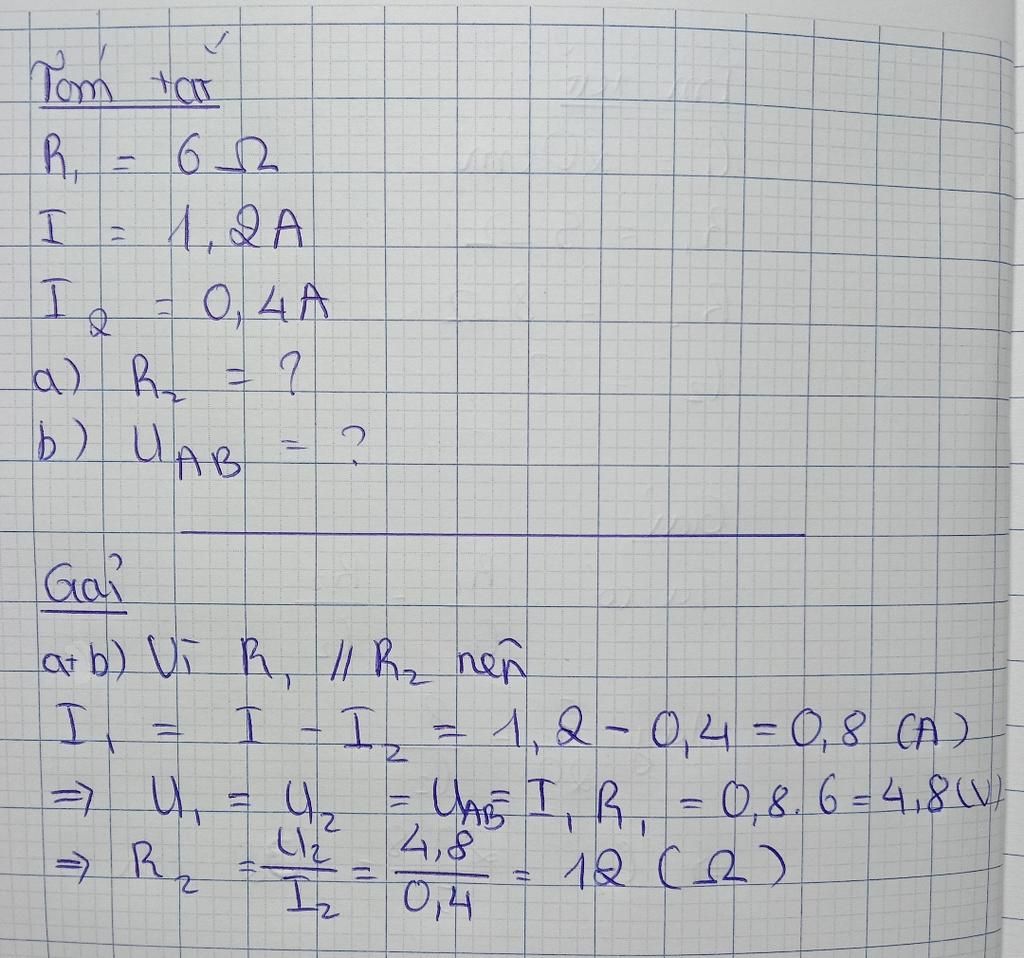 Tóm tắt
R₁ = 6 Ω
I = 1,2A
I₂ = 0,4A
a) R₂ = ?
b) U_AB = ?
Giải
a+b) Vì R₁ // R₂ nên
I₁ = I - I₂ = 1,2 - 0,4 = 0,8 (A)
⇒ U₁ = U₂ = U_AB = I₁R₁ = 0,8.6 = 4,8(V)
⇒ R₂ = U₂/I₂ = 4,8/0,4 = 12 (Ω)